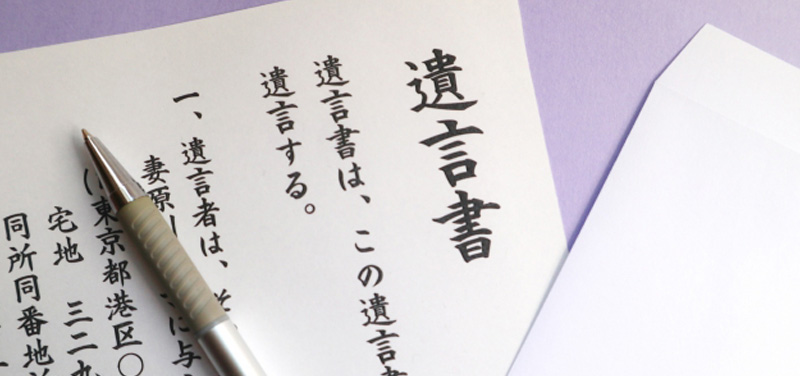 遺言書
遺言書は、この遺言書
遺言する。
一、遺言者は、
妻原
に与
(東京都港区〇
宅地 三二九
同所同番地